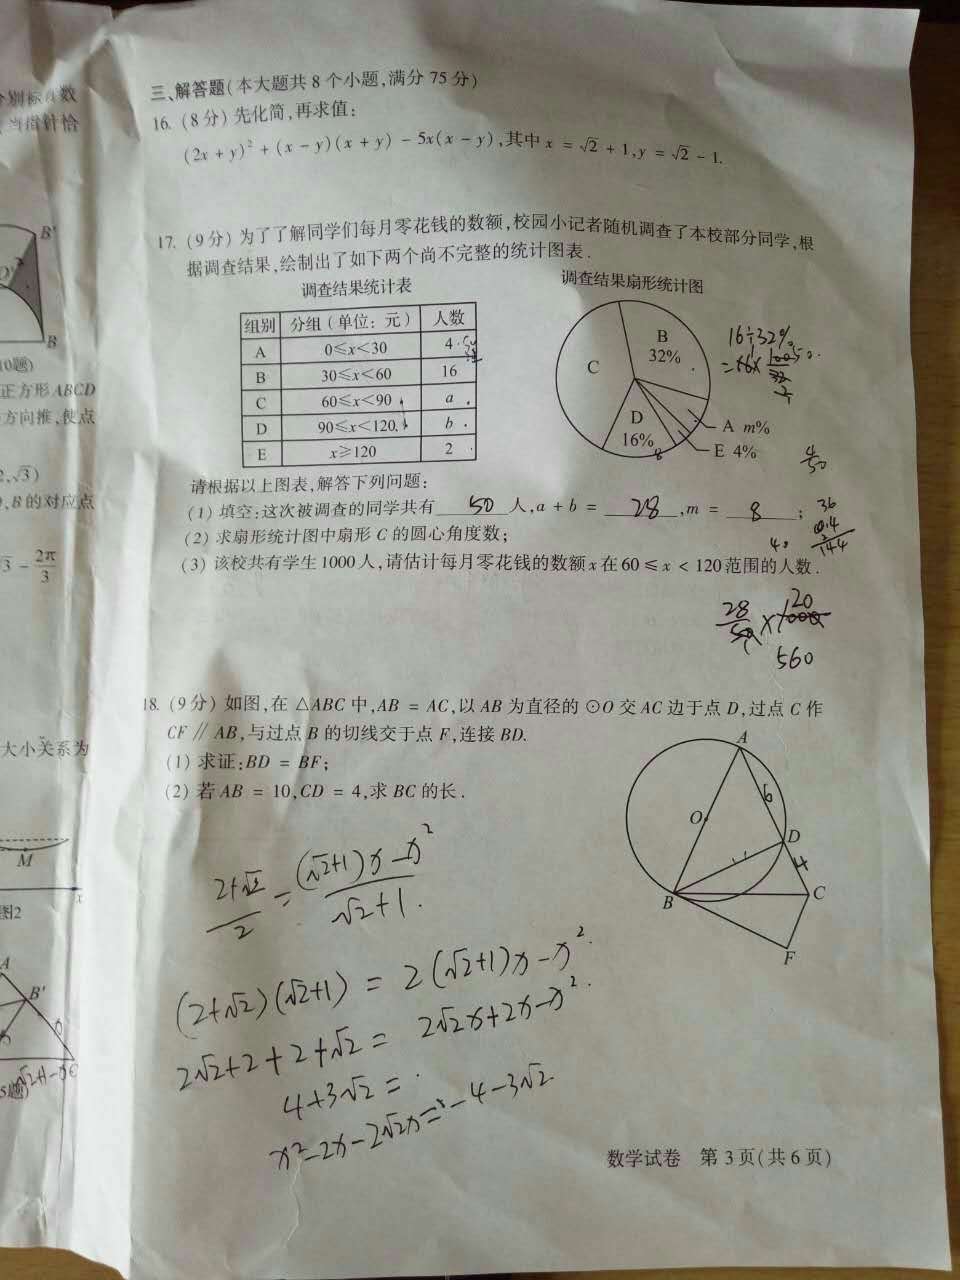 三、解答题(本大题共8个小题,满分75分)
16. (8分) 先化简,再求值:
(2x + y)² + (x - y)(x + y) - 5x(x - y),其中 x = √2 + 1, y = √2 - 1.
17. (9分) 为了了解同学们每月零花钱的数额,校园小记者随机调查了本校部分同学,根
据调查结果,绘制出了如下两个尚不完整的统计图表.
调查结果统计表
组别 分组(单位:元) 人数
A 0≤x<30 4
B 30≤x<60 16
C 60≤x<90 a
D 90≤x<120 b
E x≥120 2
调查结果扇形统计图
B
32%
C
D
16%
8
A m%
E 4%
16÷32%
4/50
请根据以上图表,解答下列问题:
(1) 填空:这次被调查的同学共有 50 人, a + b = 28 , m = 8 ;
(2) 求扇形统计图中扇形 C 的圆心角度数;
(3) 该校共有学生1000人,请估计每月零花钱的数额 x 在 60 ≤ x < 120 范围的人数.
36
144
28
20
560
18. (9分) 如图,在 △ABC 中, AB = AC,以 AB 为直径的 ⊙O 交 AC 边于点 D,过点 C 作
CF ∥ AB,与过点 B 的切线交于点 F,连接 BD.
(1) 求证: BD = BF;
(2) 若 AB = 10, CD = 4,求 BC 的长.
A
6
O
D
4
B
C
F
(2+√2)/2 = ((√2+1)x-x²)/(√2+1).
(2+√2)(√2+1) = 2(√2+1)x-x².
2√2+2+2+√2 = 2√2x+2x-x².
4+3√2 =
x²-2x-2√2x = -4-3√2
数学试卷 第3页(共6页)
当指针恰
B'
B
10题)
正方形ABCD
方向推,使点
2,√3)
B的对应点
3 - 2π/3
大小关系为
M
x
图2
A
B'
5题)